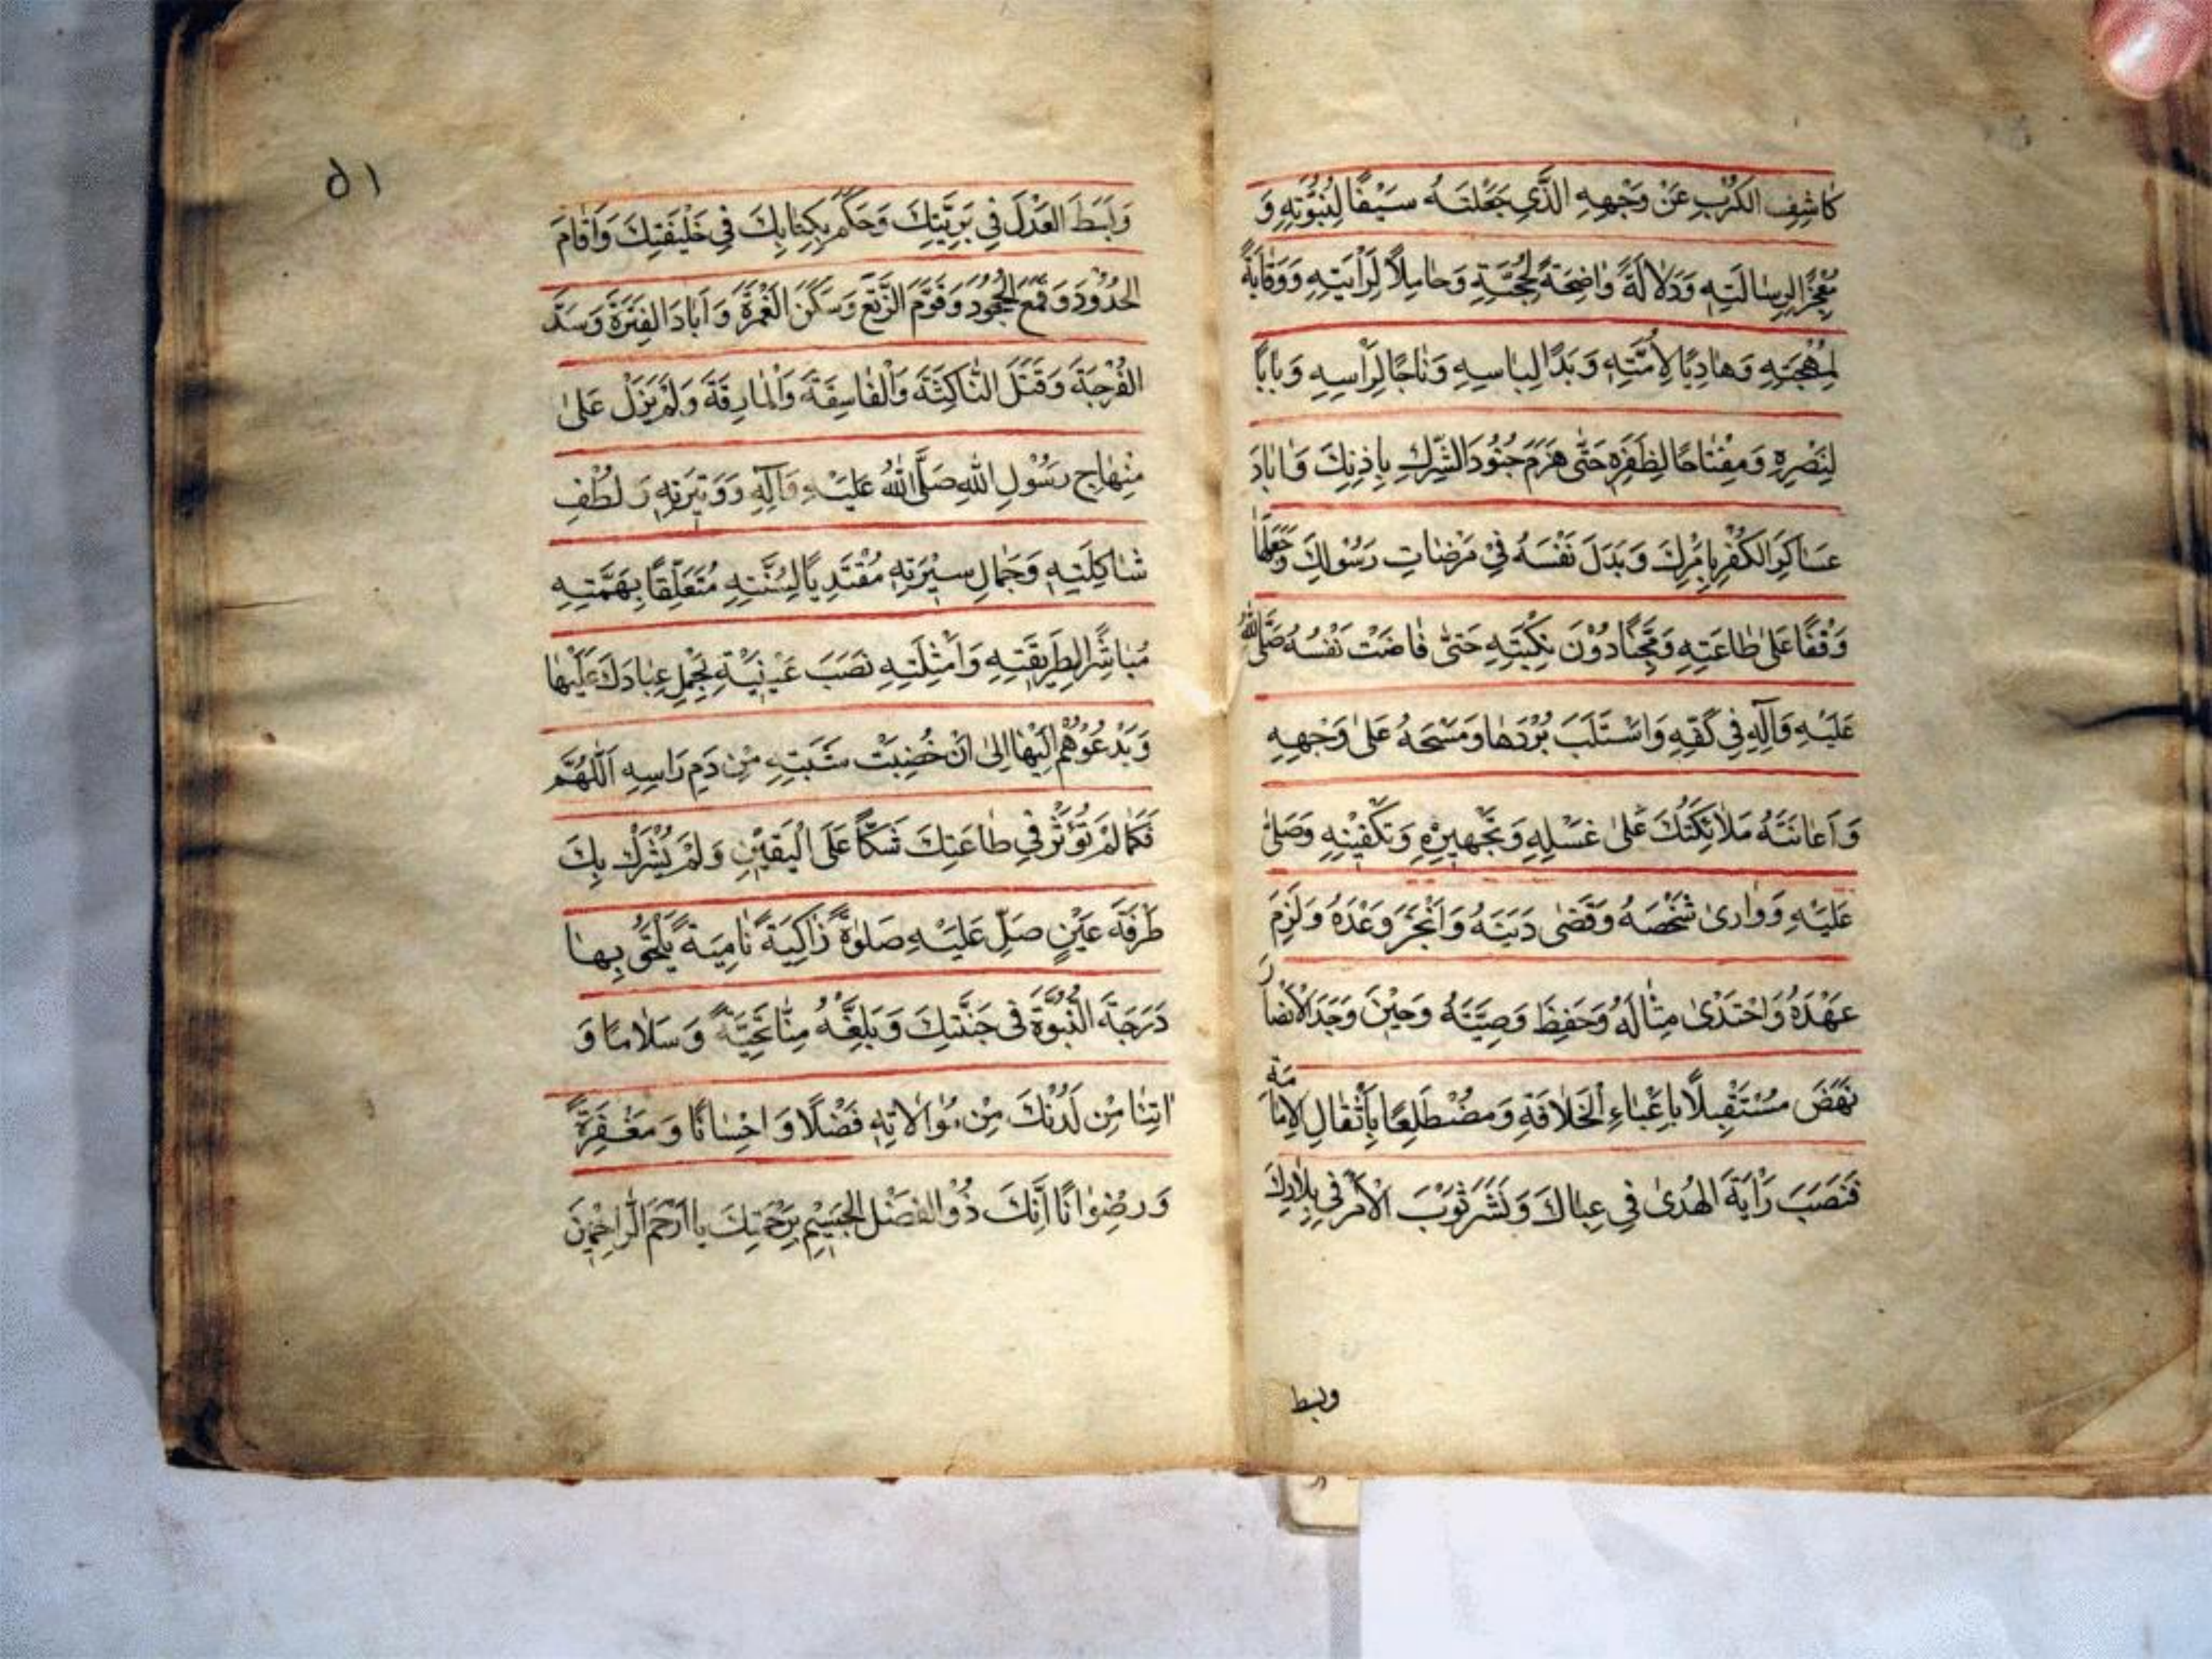 كَاشِفِ الكَرْبِ عَنْ وَجْهِهِ الَّذِي جَعَلْتَهُ سَيْفًا لِنُبُوَّتِهِ وَ
مُعْجِزًا لِرِسَالَتِهِ وَدَلَالَةً وَاضِحَةً لِحُجَّتِهِ وَحَامِلًا لِرَايَتِهِ وَوَقَايَةً
لِمُهْجَتِهِ وَهَادِيًا لِأُمَّتِهِ وَيَدًا لِبَاسِهِ وَتَاجًا لِرَأْسِهِ وَبَابًا
لِنَصْرِهِ وَمِفْتَاحًا لِظَفَرِهِ حَتَّى هَزَمَ جُنُودَ الشِّرْكِ بِاِذْنِكَ وَابَادَ
عَسَاكِرَ الكُفْرِ بِاَمْرِكَ وَبَذَلَ نَفْسَهُ فِي مَرْضَاتِ رَسُولِكَ وَجَعَلَهَا
وَقْفًا عَلَى طَاعَتِهِ وَمِجَنًّا دُوْنَ نَكْبَتِهِ حَتَّى فَاضَتْ نَفْسُهُ صَلَّى اللهُ
عَلَيْهِ وَآلِهِ فِي كَفِّهِ وَاسْتَلَبَ بُرْدَهَا وَمَسَحَهُ عَلَى وَجْهِهِ
وَاَعَانَتْهُ مَلَائِكَتُكَ عَلَى غُسْلِهِ وَتَجْهِيزِهِ وَتَكْفِيْنِهِ وَصَلَّى
عَلَيْهِ وَوَارَى شَخْصَهُ وَقَضَى دَيْنَهُ وَاَنْجَزَ وَعْدَهُ وَلَزِمَ
عَهْدَهُ وَاحْتَذَى مِثَالَهُ وَحَفِظَ وَصِيَّتَهُ وَحِيْنَ وَجَدَ الْاَنْصَارَ
نَهَضَ مُسْتَقْبِلًا بِاِعْبَاءِ الْخَلَافَةِ وَمُضْطَلِعًا بِاَثْقَالِ الاِمَامَة
فَنَصَبَ رَايَةَ الهُدَى فِي عِبَاكَ وَنَشَرَ ثَوْبَ الْاَمْرِ فِي بِلَادِكَ
وبسط
۵۱
وَبَسَطَ العَدْلَ فِي بَرِيَّتِكَ وَحَكَمَ بِكِتَابِكَ فِي خَلْيقَتِكَ وَاَقَامَ
الحُدُوْدَ وَقَمَعَ الجُحُوْدَ وَقَوَّمَ الزَّيْغَ وَسَكَّنَ الغَمْرَةَ وَاَبَادَ الفِتْرَةَ وَسَدَّ
الفُرْجَةَ وَقَتَلَ النَّاكِثَةَ وَالْفَاسِقَةَ وَالْمَارِقَةَ وَلَمْ يَزَلْ عَلَى
مِنْهَاجِ رَسُوْلِ اللهِ صَلَّى اللهُ عَلَيْهِ وَآلِهِ وَوَتِيرَتِهِ وَلُطْفِ
شَاكِلَتِهِ وَجَمَالِ سِيْرَتِهِ مُقْتَدِيًا لِسُنَّتِهِ مُتَعَلِّقًا بِهِمَّتِهِ
مُبَاشِرًا لِطَرِيقَتِهِ وَاَمْثِلَتِهِ نَصَبَ عَيْنَيْهِ يَحْمِلُ عِبَادَكَ عَلَيْهَا
وَيَدْعُوْهُمْ اِلَيْهَا اِلَى اَنْ خُضِبَتْ شَيْبَتِهِ مِنْ دَمِ رَاسِهِ اَللَّهُمَّ
فَكَمَا لَمْ يُؤْثِرْ فِي طَاعَتِكَ شَكًّا عَلَى الْيَقِيْنِ وَلَمْ يُشْرِكْ بِكَ
طَرْفَةَ عَيْنٍ صَلِّ عَلَيْهِ صَلَوةً زَاكِيَةً نَامِيَةً يَلْحَقُ بِهَا
دَرَجَةَ النُّبُوَّةِ فِي جَنَّتِكَ وَبَلِّغْهُ مِنَّا تَحِيَّةً وَسَلَامًا وَ
اتِنَا مِنْ لَدُنْكَ مِنْ مُوَالَاتِهِ فَضْلًا وَاِحْسَانًا وَمَغْفِرَةً
وَرِضْوَانًا اِنَّكَ ذُوْ الفَضْلِ الجَسِيْمِ بِرَحْمَتِكَ يَا اَرْحَمَ الرَّاحِمِيْنَ